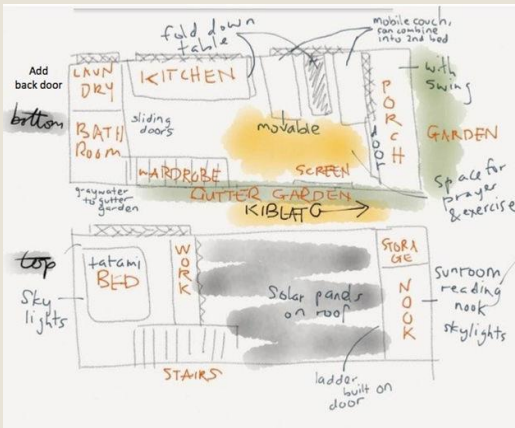 fold down
table
mobile couch,
can combine
into 2nd bed
Add
back door
LAUN
DRY
KITCHEN
with
swing
bottom
BATH
ROOM
sliding
doors
movable
PORCH
door
GARDEN
WARDROBE
SCREEN
space for
prayer
& exercise
graywater
to gutter
garden
GUTTER GARDEN
KIBLAT
top
tatami
BED
WORK
STORA
GE
Sky
lights
Solar panels
on roof
NOOK
sunroom
reading
nook
skylights
STAIRS
ladder
built on
door